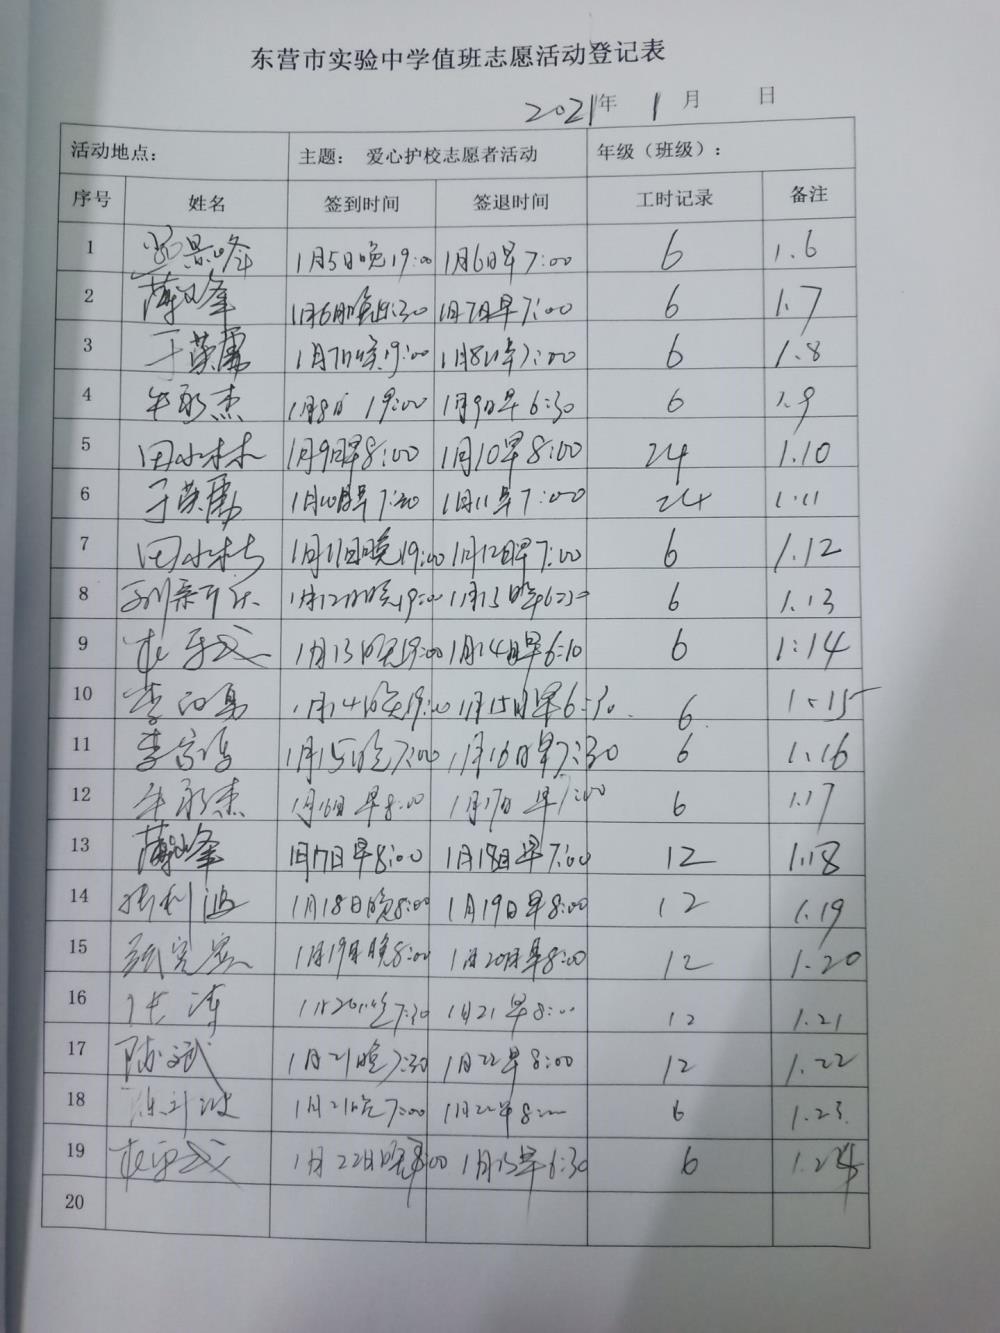 东营市实验中学值班志愿活动登记表
2021年 1月 日
活动地点: 主题: 爱心护校志愿者活动 年级（班级）:
序号 姓名 签到时间 签退时间 工时记录 备注
1 景峰 1月5日晚19:00 1月6日早7:00 6 1.6
2 薄 峰 1月6日晚 1月7日早7:00 6 1.7
3 于荣 1月7日晚19:00 1月8日早7:00 6 1.8
4 牟永杰 1月8日 19:00 1月9日早6:30 6 1.9
5 田 1月9日早8:00 1月10早8:00 24 1.10
6 于荣 1月10日早7:30 1月11早7:00 24 1.11
7 田 1月11日晚19:00 1月12日早7:00 6 1.12
8 1月12日晚19:00 1月13 6 1.13
9 1月13日晚19:00 1月14日早6:10 6 1:14
10 李 勇 1月14日晚19:00 1月15日早6:30 6 1.15
11 李 1月15晚7:00 1月16日早7:30 6 1.16
12 牟永杰 1月16日早8:00 1月17日早7:00 6 1.17
13 薄 峰 1月17日早8:00 1月18日早7:00 12 1.18
14 利 1月18日晚8:00 1月19日早8:00 12 1.19
15 1月19日晚8:00 1月20日早8:00 12 1.20
16 张涛 1月20晚7:30 1月21早8:00 12 1.21
17 陈斌 1月21晚7:30 1月22早8:00 12 1.22
18 1月21晚7:00 1月22早8:00 6 1.23
19 1月22日晚 1月23早6:30 6 1.24
20